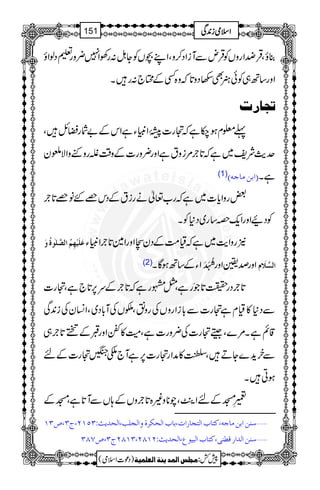 اسلامی زندگی 151
بناؤ، قرضداروں کو قرض سے آزاد کرو، اپنے بچوں کو جاہل نہ رکھو انہیں ضرور تعلیم دلواؤ
اور ساتھ ہی کوئی ہنر بھی سکھا دو تاکہ وہ کسی کے محتاج نہ رہیں۔
تجارت
پہلے معلوم ہو چکا ہے کہ تجارت پیشۂ انبیاء ہے اس کے بے شمار فضائل ہیں،
حدیث شریف میں ہے کہ تاجر مرزوق ہے اور ضرورت کے وقت غلہ روکنے والا ملعون
ہے۔ (ابن ماجه) (1)
بعض روایات میں ہے کہ رب تعالیٰ نے رزق کے دس حصے کئے نو حصے تاجر
کو دیئے اور ایک حصہ ساری دنیا کو۔
نیز روایت میں ہے کہ قیامت کے دن سچا اور امین تاجر انبیاء عَلَيْهِمُ الصَّلٰوةُ وَ
السَّلَام اور صدیقین اور شُہَداء کے ساتھ ہوگا۔ (2)
تاجر درحقیقت تاجور ہے، مثل مشہور ہے کہ تاجر کے سر پر تاج ہے، تجارت
سے دنیا کا قیام ہے تجارت سے بازاروں کی رونق، ملکوں کی آبادی، انسان کی زندگی
قائم ہے۔ مرے، جیتے تجارت کی ضرورت ہے، میت کا کفن اور قبر کے تختے تاجر ہی
سے خریدے جاتے ہیں، سلطنت کا مدار تجارت پر ہے آج ملکی جنگیں تجارت کے لئے
ہوتی ہیں۔
تعمیر مسجد کے لئے اینٹ، چونا وغیرہ تاجروں کے ہاں سے آتا ہے، مسجد کے
سنن ابن ماجه، كتاب التجارات، باب الحكرة والجلب، الحديث: ۲۱۵۳، ج۳، ص۱۳
سنن الدار قطني، كتاب البيوع، الحديث: ۲۸۱۲، ۲۸۱۳، ج۳، ص۳۸۷
پیش کش: مجلس المدينة العلمية (دعوتِ اسلامی)